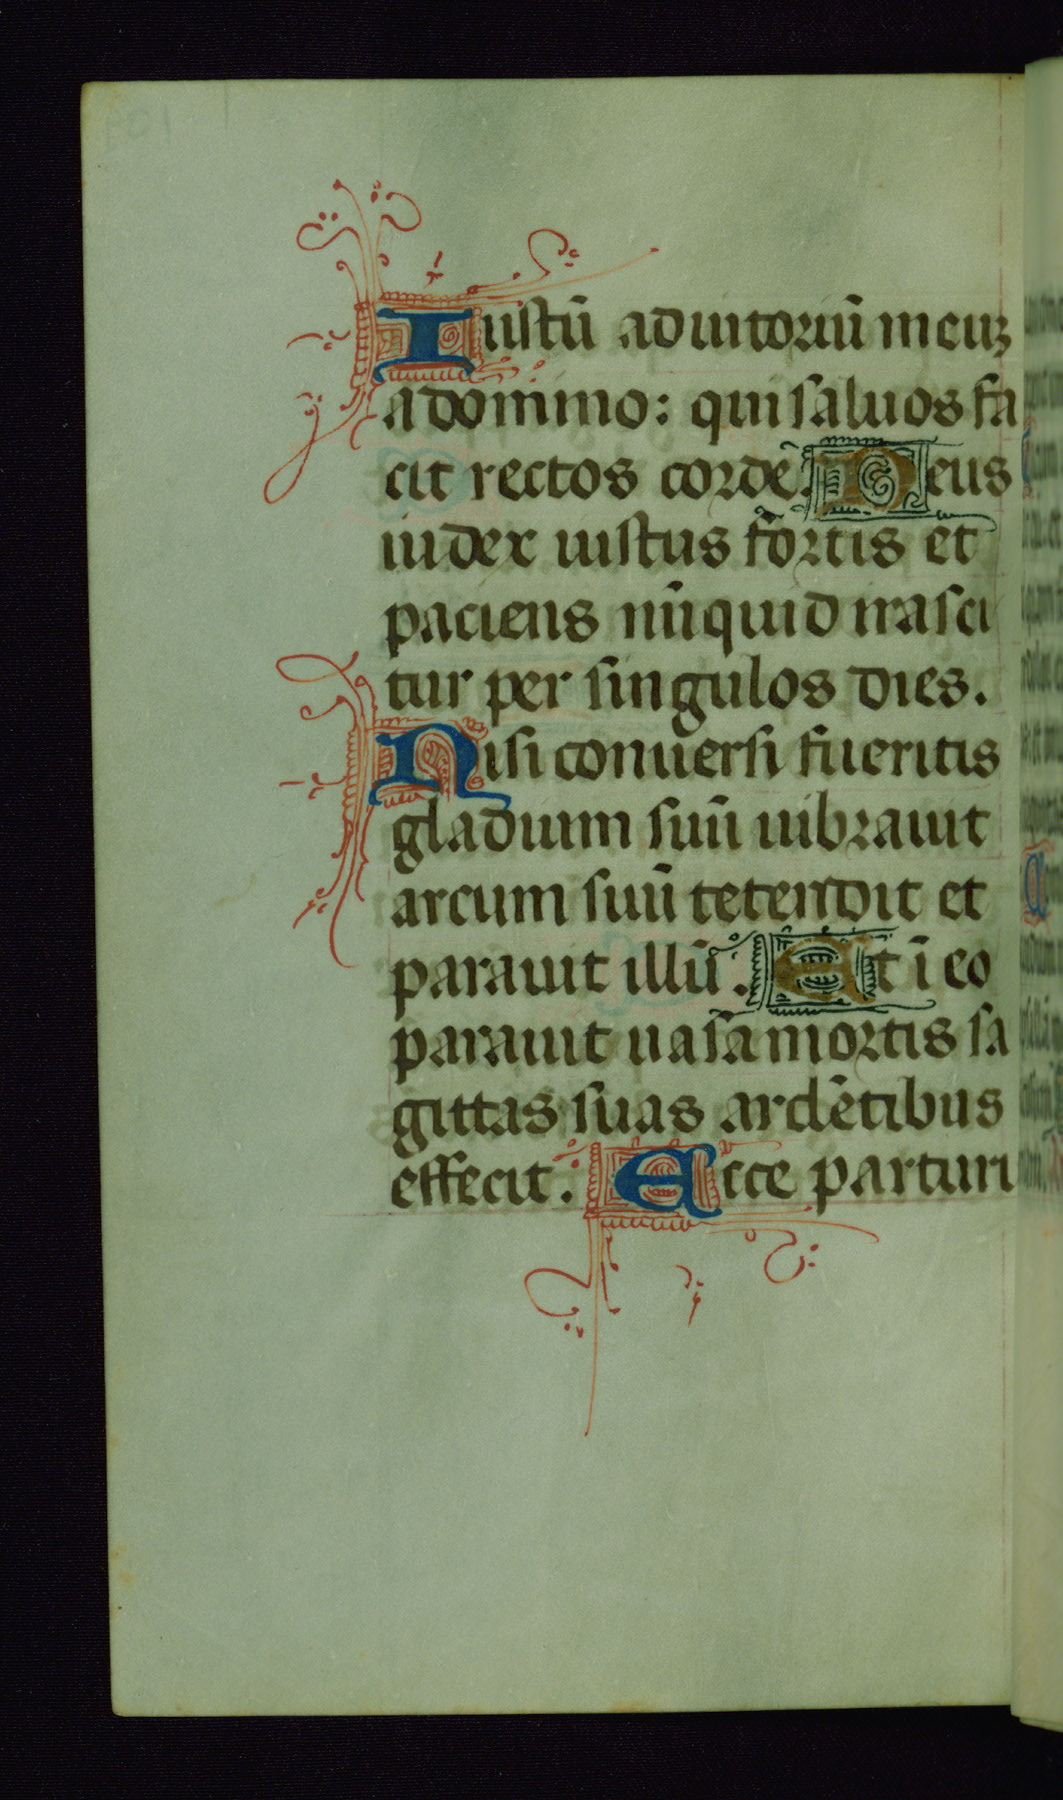 Iustū adiutoriū meuꝫ
a domino: qui saluos fa
cit rectos corde. Deus
iudex iustus fortis et
paciens nūquid irasci
tur per singulos dies.
Nisi conuersi fueritis
gladium suū uibrauit
arcum suū tetendit et
parauit illū. Et ī eo
parauit uasa mortis sa
gittas suas ardētibus
effecit. Ecce parturi